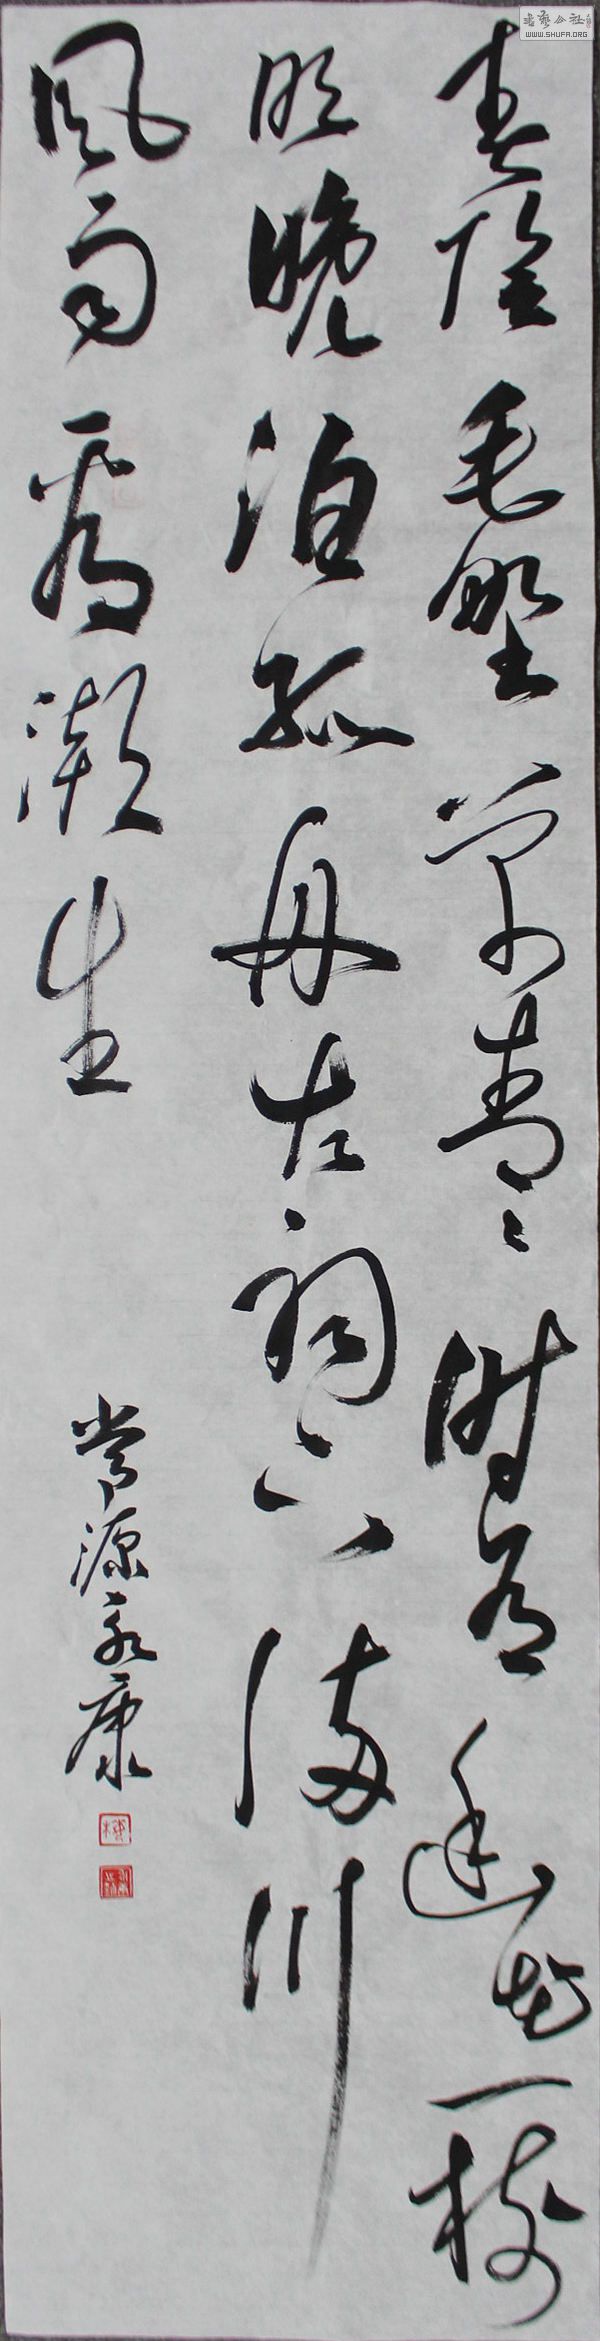 書藝公社
WWW.SHUFA.ORG
春陰垂野草青々時有幽花一樹
明晚泊孤舟古祠下滿川
風雨看潮生
常源永康